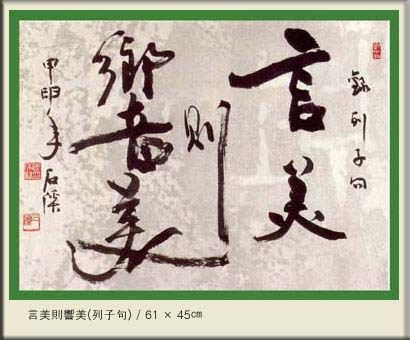 錄列子句
言美
則
響美
甲申年
言美則響美(列子句) / 61 × 45㎝